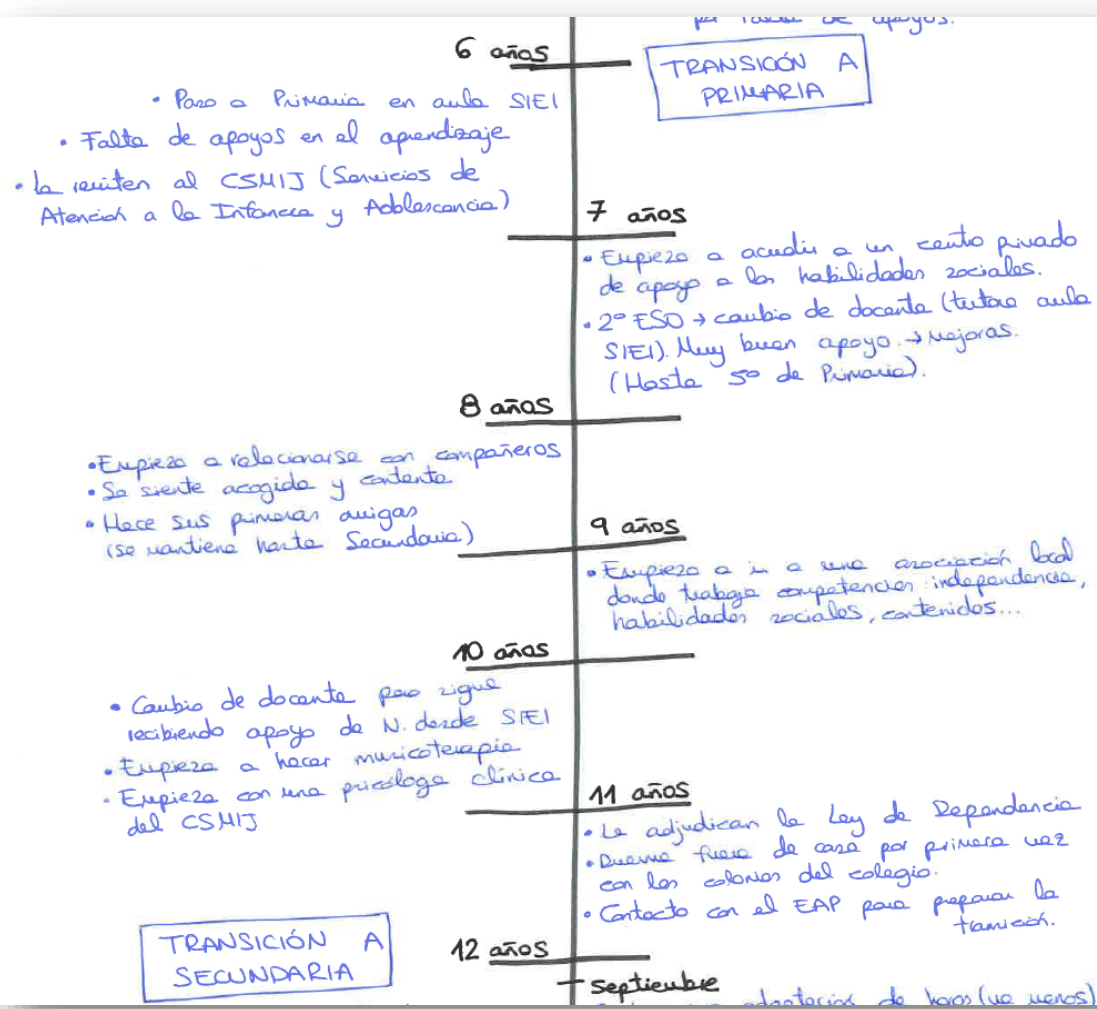 por falta de apoyos.
6 años
TRANSICIÓN A
PRIMARIA
• Paso a Primaria en aula SIEI
• Falta de apoyos en el aprendizaje
• la remiten al CSMIJ (Servicios de
Atención a la Infancia y Adolescencia)
7 años
• Empieza a acudir a un centro privado
de apoyo a las habilidades sociales.
• 2º ESO → cambio de docente (tutora aula
SIEI). Muy buen apoyo. → Mejoras.
(Hasta 5º de Primaria).
8 años
• Empieza a relacionarse con compañeros
• Se siente acogida y contenta
• Hace sus primeras amigas
(se mantiene hasta Secundaria)
9 años
• Empieza a ir a una asociación local
donde trabaja competencias: independencia,
habilidades sociales, contenidos...
10 años
• Cambio de docente pero sigue
recibiendo apoyo de N. desde SIEI
• Empieza a hacer musicoterapia
• Empieza con una psicóloga clínica
del CSMIJ
11 años
• Le adjudican la Ley de Dependencia
• Duerme fuera de casa por primera vez
con las colonias del colegio.
• Contacto con el EAP para preparar la
transición.
TRANSICIÓN A
SECUNDARIA
12 años
septiembre
adaptación de horas (va menos)